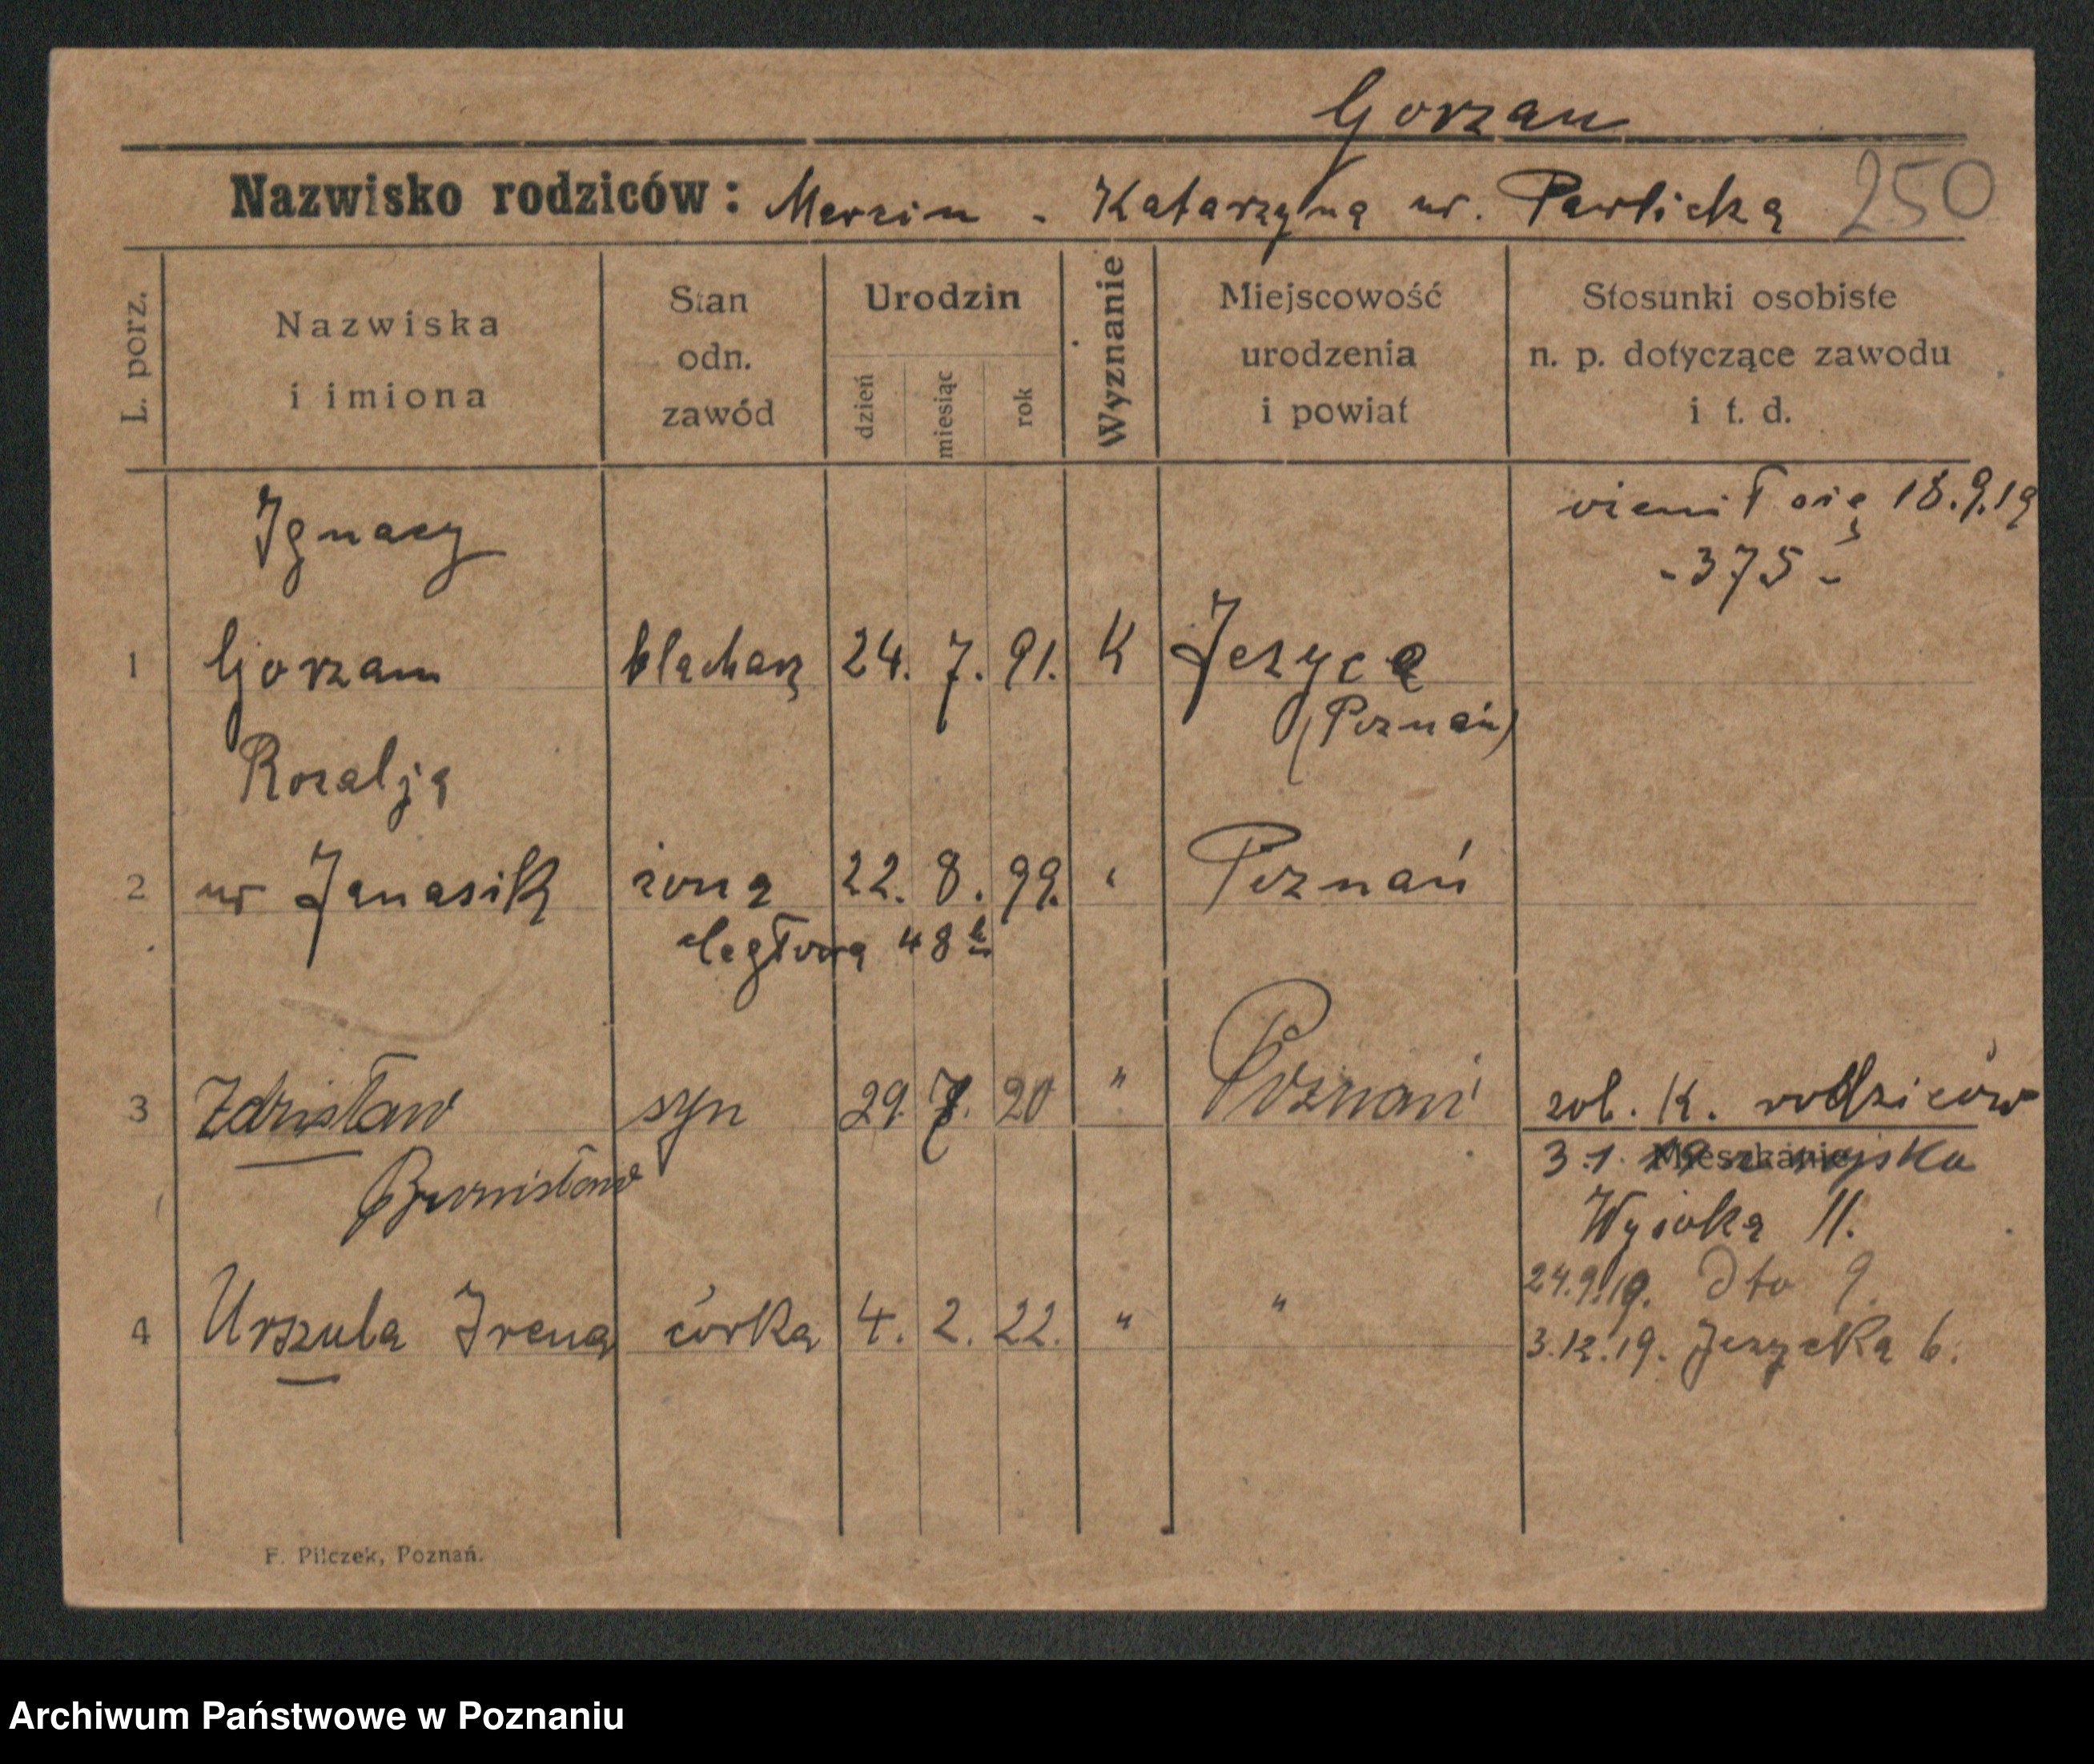 Gorzan
Nazwisko rodziców: Marcin - Katarzyna ur. Pawlicka 250
L. porz.
Nazwiska i imiona
Stan odn. zawód
Urodzin
dzień miesiąc rok
Wyznanie
Miejscowość urodzenia i powiat
Stosunki osobiste n. p. dotyczące zawodu i t. d.
Ignacy
18.9.19
-375-
1 Gorzan blacharz 24. 7. 91. K Jezyce
(Poznań)
Rozalja
2 ur Janasik żona 22. 8. 99. " Poznań
48
3 Zdzisław syn 29. 7. 20 " Poznań zob. K. rodziców
Bronisław
3.1. Mieszkanie
Wysoka 11.
24.9.19. dto 9.
4 Urszula Irena córka 4. 2. 22. " "
3.12.19. Jeżycka 6.
F. Pilczek, Poznań.
Archiwum Państwowe w Poznaniu